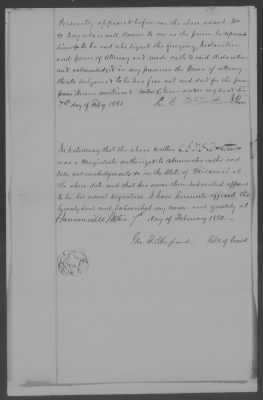 Personally appeared before me the above named Wm
H. Ray who is well known to me as the person he represents
himself to be and who signed the foregoing Declaration
and power of Attorney and made oath to said declaration
and acknowledged in my presence the Power of Attorney
thereto subjoined to be his free act and deed for the pur-
poses therein mentioned. Witness my hand this
7th day of Feby 1880.
L. E.
In testimony that the above written
was a Magistrate authorized to administer oaths and
take acknowledgments in the State of Missouri at
the above date and that his name there subscribed appears
to be his usual signature, I have hereunto affixed the
County Seal and subscribed my name and quality at
this 7th day of February 1880.
Geo. D. Shepard Clk of Court